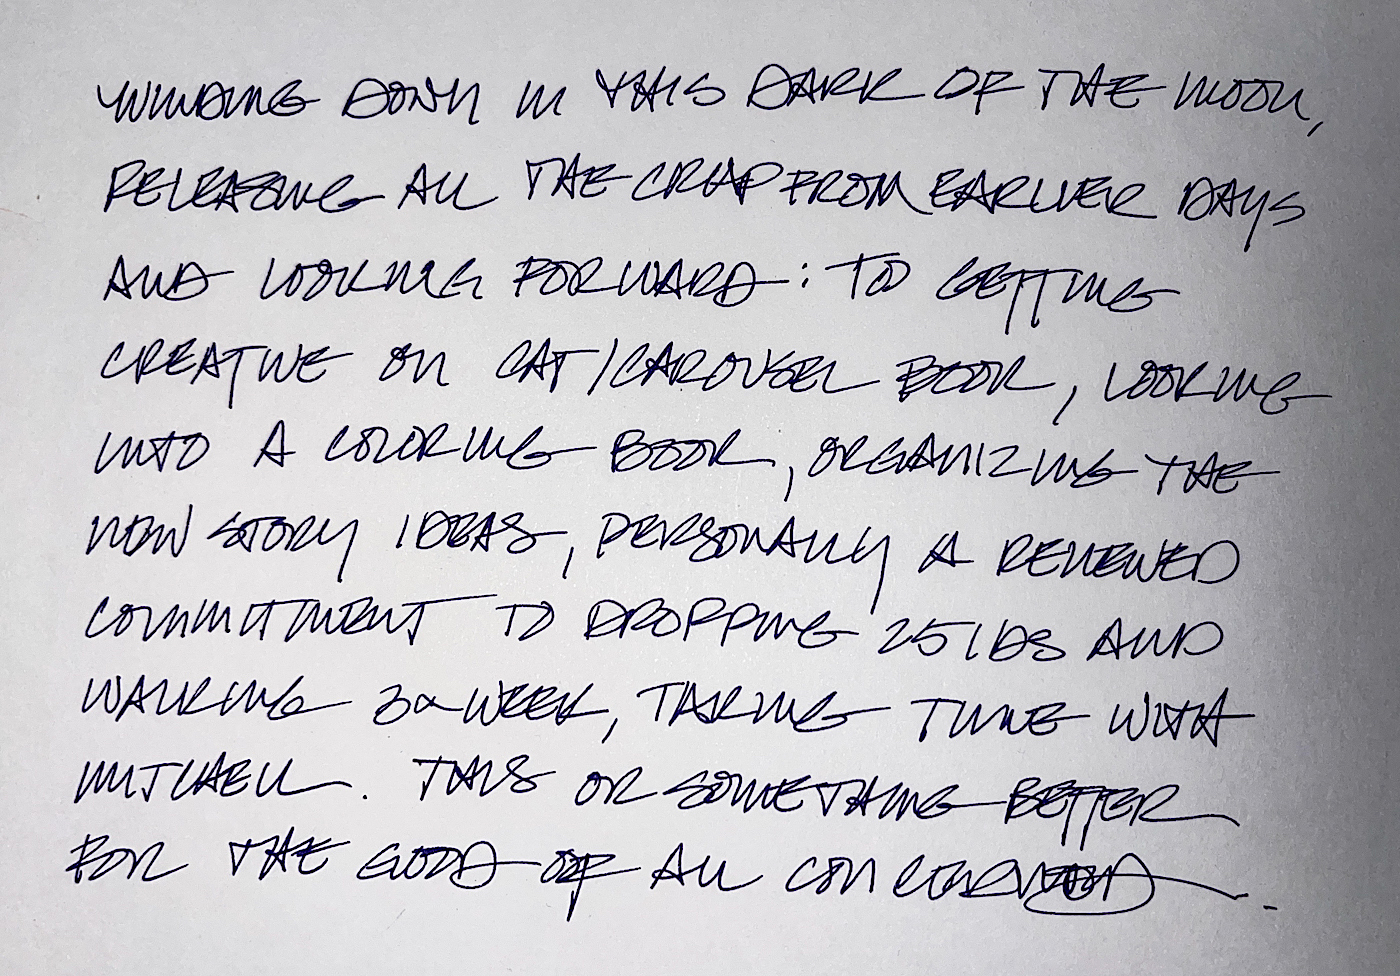 WINDING DOWN IN THIS DARK OF THE MOON,
RELEASING ALL THE CRAP FROM EARLIER DAYS
AND LOOKING FORWARD: TO GETTING
CREATIVE ON CAT/CAROUSEL BOOK, LOOKING
INTO A COLORING BOOK, ORGANIZING THE
NEW STORY IDEAS, PERSONALLY A RENEWED
COMMITMENT TO DROPPING 25 lbs AND
WALKING 3x WEEK, TAKING TIME WITH
MITCHELL. THIS OR SOMETHING BETTER
FOR THE GOOD OF ALL CONCERNED.